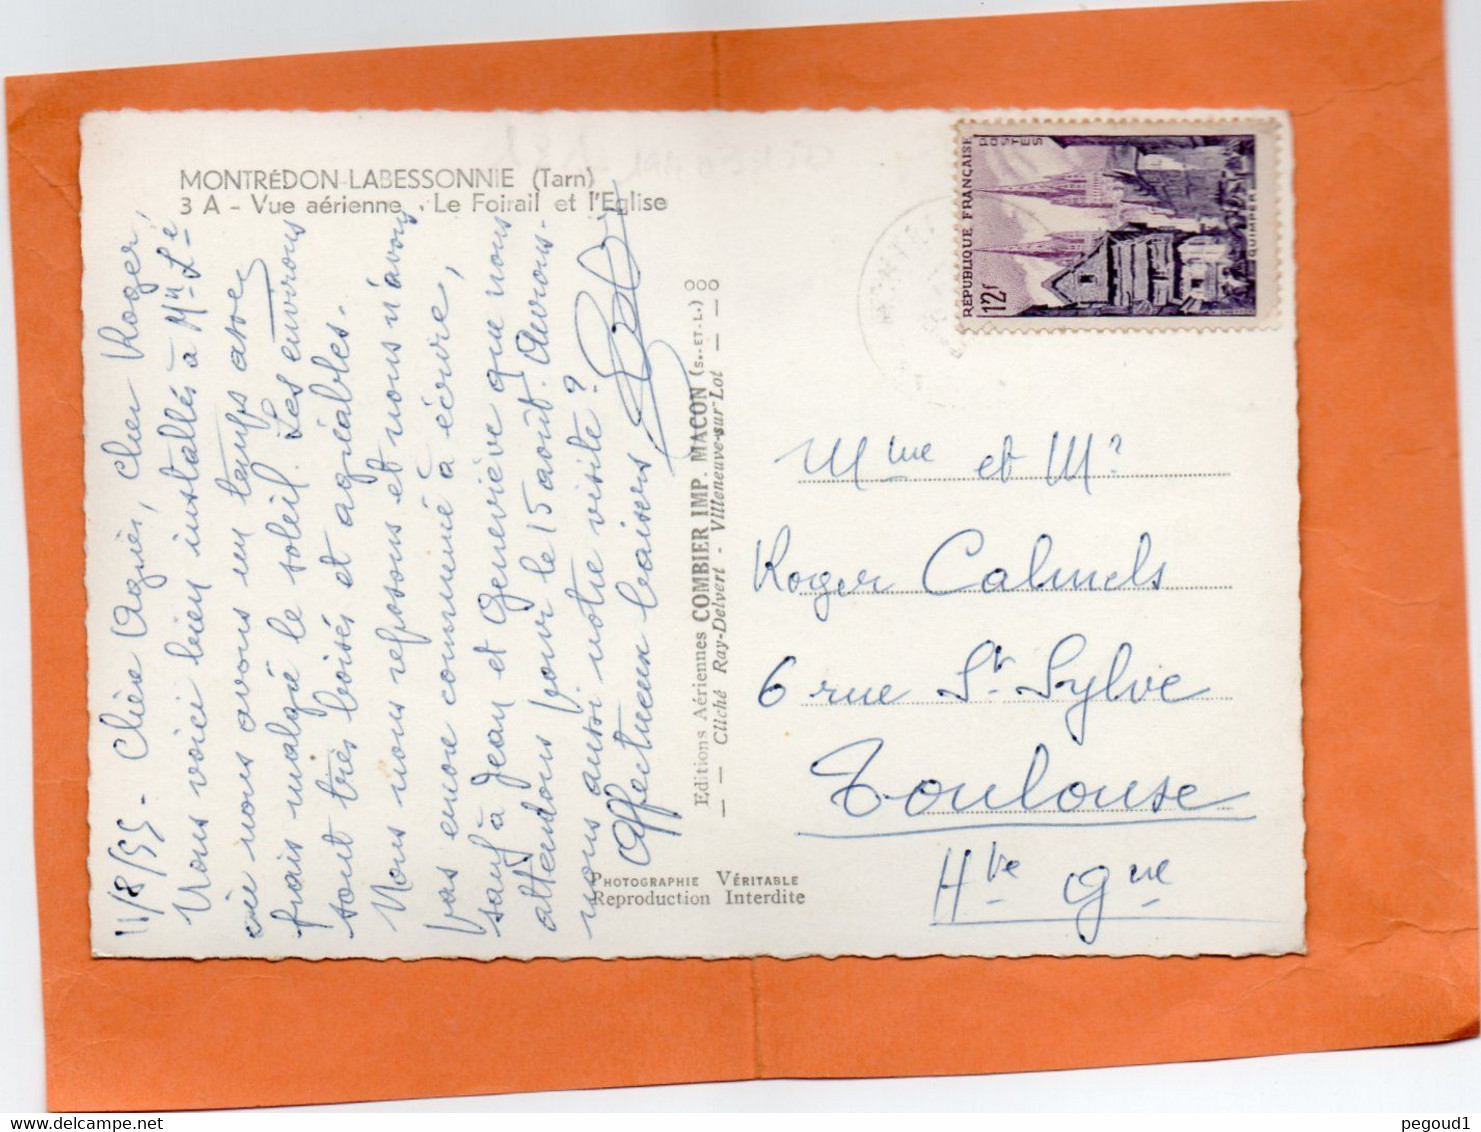 MONTRÉDON-LABESSONNIE (Tarn)
3 A - Vue aérienne. Le Foirail et l'Eglise
11/8/55 - Chère Agnès, Cher Roger,
Nous voici bien installés à Mn-L-é
où nous avons un temps assez
frais malgré le soleil. Les environs
sont très boisés et agréables.
Nous nous reposons et nous n'avons
pas encore commencé à écrire,
sauf à Jean et Geneviève que nous
attendons pour le 15 août. Aurons-
nous aussi votre visite ?
Affectueux baisers
Editions Aériennes COMBIER IMP. MACON (S.-ET-L.) 000
Cliché Ray-Delvert - Villeneuve-sur-Lot
PHOTOGRAPHIE VÉRITABLE
Reproduction Interdite
RÉPUBLIQUE FRANÇAISE
POSTES
12F
QUIMPER
Mme et Mr
Roger Calmels
6 rue St Sylve
Toulouse
Hte Gne
www.delcampe.net
pegoud1